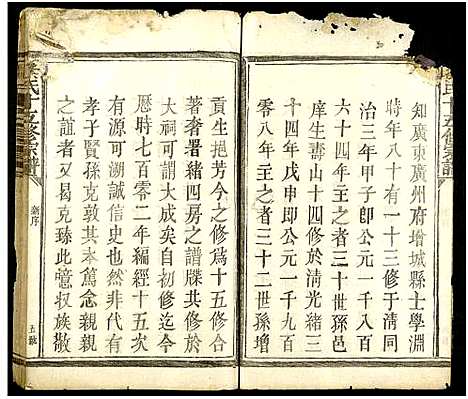 知廣東廣州府增城縣士學淵
時年八十有一十三修于清同
治三年甲子即公元一千八百
六十四年主之者三十世孫邑
庠生壽山十四修於清光緒三
十四年戊申即公元一千九百
零八年主之者三十二世孫增
貢生挹芳今之修爲十五修合
著者署緒四房之譜牒共修於
大祠可謂大成矣自初修迄今
歷時七百零二年編經十五次
有源可溯誠信史也然非代有
孝子賢孫克敦其本篤念親親
之誼者又曷克臻此噫叔族敬
氏十五修宗譜
新序
五